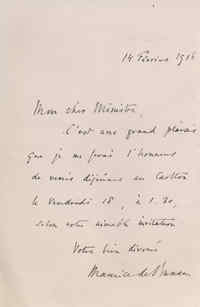 14 Février 1916
Mon cher Ministre,
C'est avec grand plaisir
que je me ferai l'honneur
de venir déjeuner au Carlton
le Vendredi 18, à 1.30,
selon votre aimable invitation
Votre bien dévoué
Maurice de Bunsen